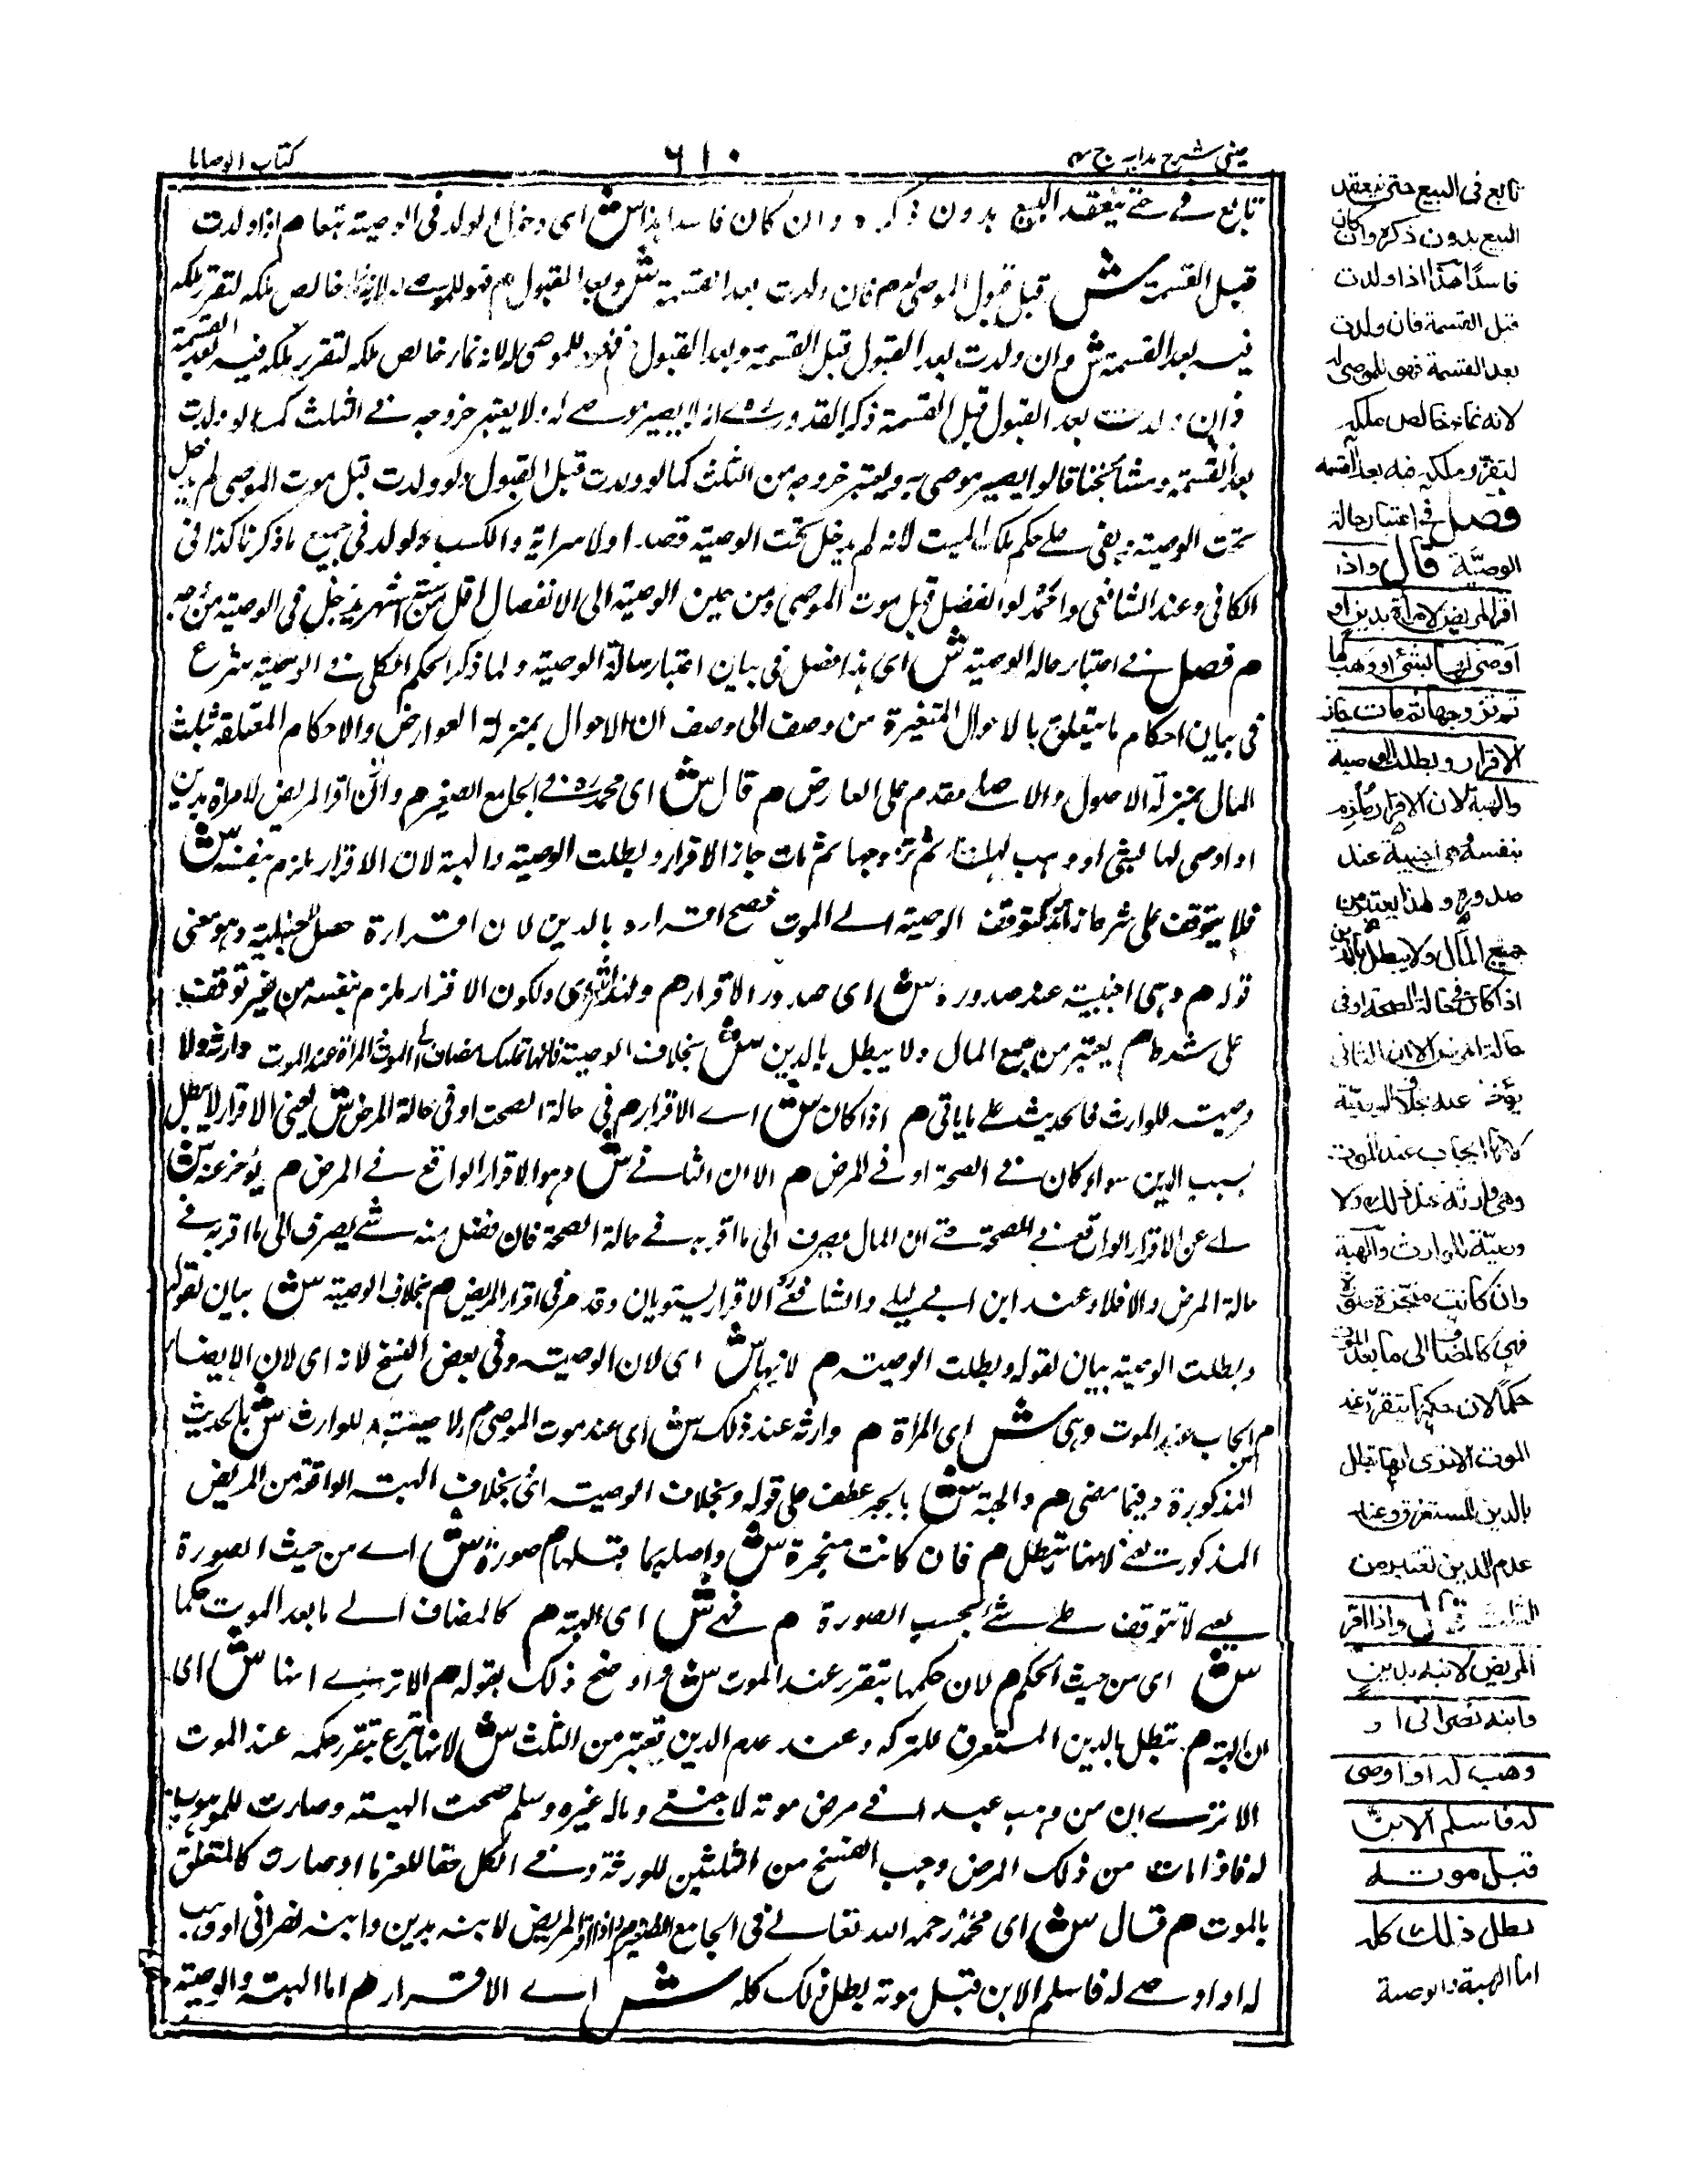 عینی شرح ہدایہ ج ۴
۶۱۰
كتاب الوصايا
تابع فى حتى ينعقد البيع بدون ذكره وان كان فاسدا هذا ش اى دخول الولد فى الوصية تبعا م اذا ولدت
قبل القسمة ش قبل قبول الموصى له م فان ولدت بعد القسمة ش وبعد القبول م فهو للموصى له لانه نماء خالص ملكه لتقرر ملكه
فيه بعد القسمة ش وان ولدت بعد القبول قبل القسمة وبعد القبول فهو للموصى له لانه نماء خالص ملكه لتقرر ملكه فيه بعد القسمة
فان ولدت بعد القبول قبل القسمة ذكر القدورى انه لا يصير موصى له ولا يعتبر خروجه فى الثلث كما لو ولدت
بعد القسمة ومشائخنا قالوا يصير موصى به ويعتبر خروجه من الثلث كما لو ولدت قبل القبول ولو ولدت قبل موت الموصى لم يدخل
تحت الوصية وبقى على حكم ملك الميت لانه لم يدخل تحت الوصية قصدا ولا سراية والكسب كالولد فى جميع ما ذكرنا كذا فى
الكافى وعند الشافعى واحمد لو انفصل قبل موت الموصى ومن حين الوصية الى الانفصال اقل من ستة اشهر يدخل فى الوصية
م فصل فى اعتبار حالة الوصية ش اى هذا فصل فى بيان اعتبار حالة الوصية ولما ذكر الحكم الكلى فى الوصية شرع
فى بيان احكام ما يتعلق بالاحوال المتغيرة من وصف الى وصف لان الاحوال بمنزلة العوارض والاحكام المتعلقة بثلث
المال بمنزلة الاصول والاصل مقدم على العارض م قال ش اى محمد فى الجامع الصغير م واذا اقر المريض لامرأة بدين
او اوصى لها بشئ او وهب لها ثم تزوجها ثم مات جاز الاقرار وبطلت الوصية والهبة لان الاقرار ملزم بنفسه ش
فلا يتوقف على شرط زائد كتوقف الوصية الى الموت فصح اقراره بالدين لان اقراره حصل لاجنبية وهو معنى
قوله م وهى اجنبية عند صدوره ش اى صدور الاقرار م ولهذا ش اى ولكون الاقرار ملزم بنفسه من غير توقف
على شرط م يعتبر من جميع المال ولا يبطل بالدين ش بخلاف الوصية فانها تمليك مضاف الى الموت والمرأة عند الموت وارثة ولا
وصية للوارث للحديث على ما ياتى م اذا كان ش اى الاقرار م فى حالة الصحة او فى حالة المرض ش يعنى الاقرار لا يبطل
بسبب الدين سواء كان فى الصحة او فى المرض م الا ان الثانى ش وهو الاقرار الواقع فى المرض م يؤخر عنه ش
اى عن الاقرار الواقع فى الصحة حتى ان المال يصرف الى ما اقر به فى حالة الصحة فان فضل منه شئ يصرف الى ما اقر به فى
حالة المرض والا فلا وعند ابن ابى ليلى والشافعى الاقرار يستويان وقد مر فى اقرار المريض م بخلاف الوصية ش بيان لقوله
وبطلت الوصية بيان لقوله وبطلت الوصية م لانها ش اى لان الوصية وفى بعض النسخ لانه اى لان الايصاء
م ايجاب عند الموت وهى ش اى المرأة م وارثة عند ذلك ش اى عند موت الموصى م ولا وصية للوارث ش بالحديث
المذكورة فيما مضى م والهبة ش بالجر عطف على قوله وبخلاف الوصية اى بخلاف الهبة الواقعة من المريض
المذكورة يعنى انها تبطل م فان كانت منجزة ش واصله بما قبلها م صورة ش اى من حيث الصورة
يعنى لا تتوقف على شئ بحسب الصورة م فهى ش اى الهبة م كالمضاف الى ما بعد الموت حكما
ش اى من حيث الحكم م لان حكمها يتقرر عند الموت ش واوضح ذلك بقوله م الا ترى انها ش اى
ان الهبة م تبطل بالدين المستغرق للتركة وعند عدم الدين يعتبر من الثلث ش لانها تبرع يتقرر حكمه عند الموت
الا ترى ان من وهب عبدا فى مرض موته لاجنبى وماله غيره وسلم صحت الهبة وصارت للموهوب
له فاذا مات من ذلك المرض وجب الفسخ من الثلثين للورثة وفى الكل حقا للغرماء وصارت كالمتعلق
بالموت م قال ش اى محمد رحمه الله تعالى فى الجامع الصغير م واذا اقر المريض لابنه بدين وابنه نصرانى او وهب
له او اوصى له فاسلم الابن قبل موته بطل ذلك كله ش اى الاقرار م اما الهبة والوصية
تابع فى البيع حتى ينعقد
البيع بدون ذكره وان كان
فاسدا هذا اذا ولدت
قبل القسمة فان ولدت
بعد القسمة فهو للموصى له
لانه نماء خالص ملكه
لتقرر ملكه فيه بعد القسمة
فصل فى اعتبار حالة
الوصية قال واذا
اقر المريض لامرأة بدين او
اوصى لها بشئ او وهب لها
ثم تزوجها ثم مات جاز
الاقرار وبطلت الوصية
والهبة لان الاقرار ملزم
بنفسه وهى اجنبية عند
صدوره ولهذا يعتبر من
جميع المال ولا يبطل بالدين
اذا كان فى حالة الصحة او فى
حالة المرض الا ان الثانى
يؤخر عنه بخلاف الوصية
لانها ايجاب عند الموت
وهى وارثة عند ذلك ولا
وصية للوارث والهبة
وان كانت منجزة صورة
فهى كالمضاف الى ما بعد الموت
حكما لان حكمها يتقرر عند
الموت الا ترى انها تبطل
بالدين المستغرق وعند
عدم الدين تعتبر من
الثلث قال واذا اقر
المريض لابنه بدين
وابنه نصرانى او
وهب له او اوصى
له فاسلم الابن
قبل موته
بطل ذلك كله
اما الهبة والوصية